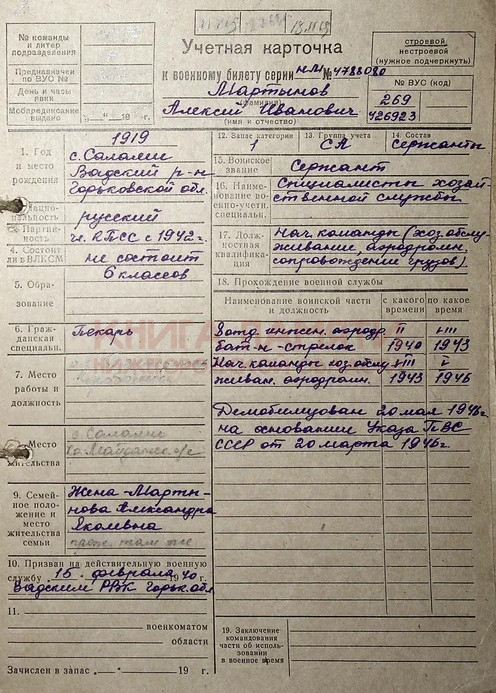 13.11.69
Учетная карточка
к военному билету серии НЛ № 4788080
Мартынов
(фамилия)
Алексей Иванович
(имя и отчество)
№ команды и литер подразделения
Предназначен по ВУС №
День и часы явки
Мобпредписание выдано „ “ 19 г.
строевой
нестроевой
(нужное подчеркнуть)
№ ВУС (код)
269
426923
1. Год и место рождения
1919
с. Салалей
Вадский р-н
Горьковской обл.
2. Национальность русский
3. Партийность чл. КПСС с 1942 г.
4. Состоит ли в ВЛКСМ не состоит
5. Образование 6 классов
6. Гражданская специальн. Пекарь
7. Место работы и должность
8. Место жительства
с. Салалей
9. Семейное положение и место жительства семьи
Жена - Марты-
нова Александра
Яковлевна
прож. там же
10. Призван на действительную военную
службу 15 февраля 1940 г.
Вадским РВК Горьк. обл.
11.
военкоматом
области
Зачислен в запас „ “ 19 г.
12. Запас категории 1
13. Группа учета СА
14. Состав сержанты
15. Воинское звание Сержант
16. Наименование военно-учетн. специальн.
Специалисты хозяй-
ственной службы
17. Должностная квалификация
Нач. команды (хоз. обслу-
живание, аэродромн.
сопровождение грузов)
18. Прохождение военной службы
Наименование воинской части и должность
с какого времени
по какое время
инжен. аэродр. II VIII
бат-н - стрелок 1940 1943
Нач. команды хоз. обслу- VIII V
живан. аэродромн. 1943 1946
Демобилизован 20 мая 1946 г
на основании Указа ПВС
СССР от 20 марта 1946 г
19. Заключение командования части об использовании в военное время